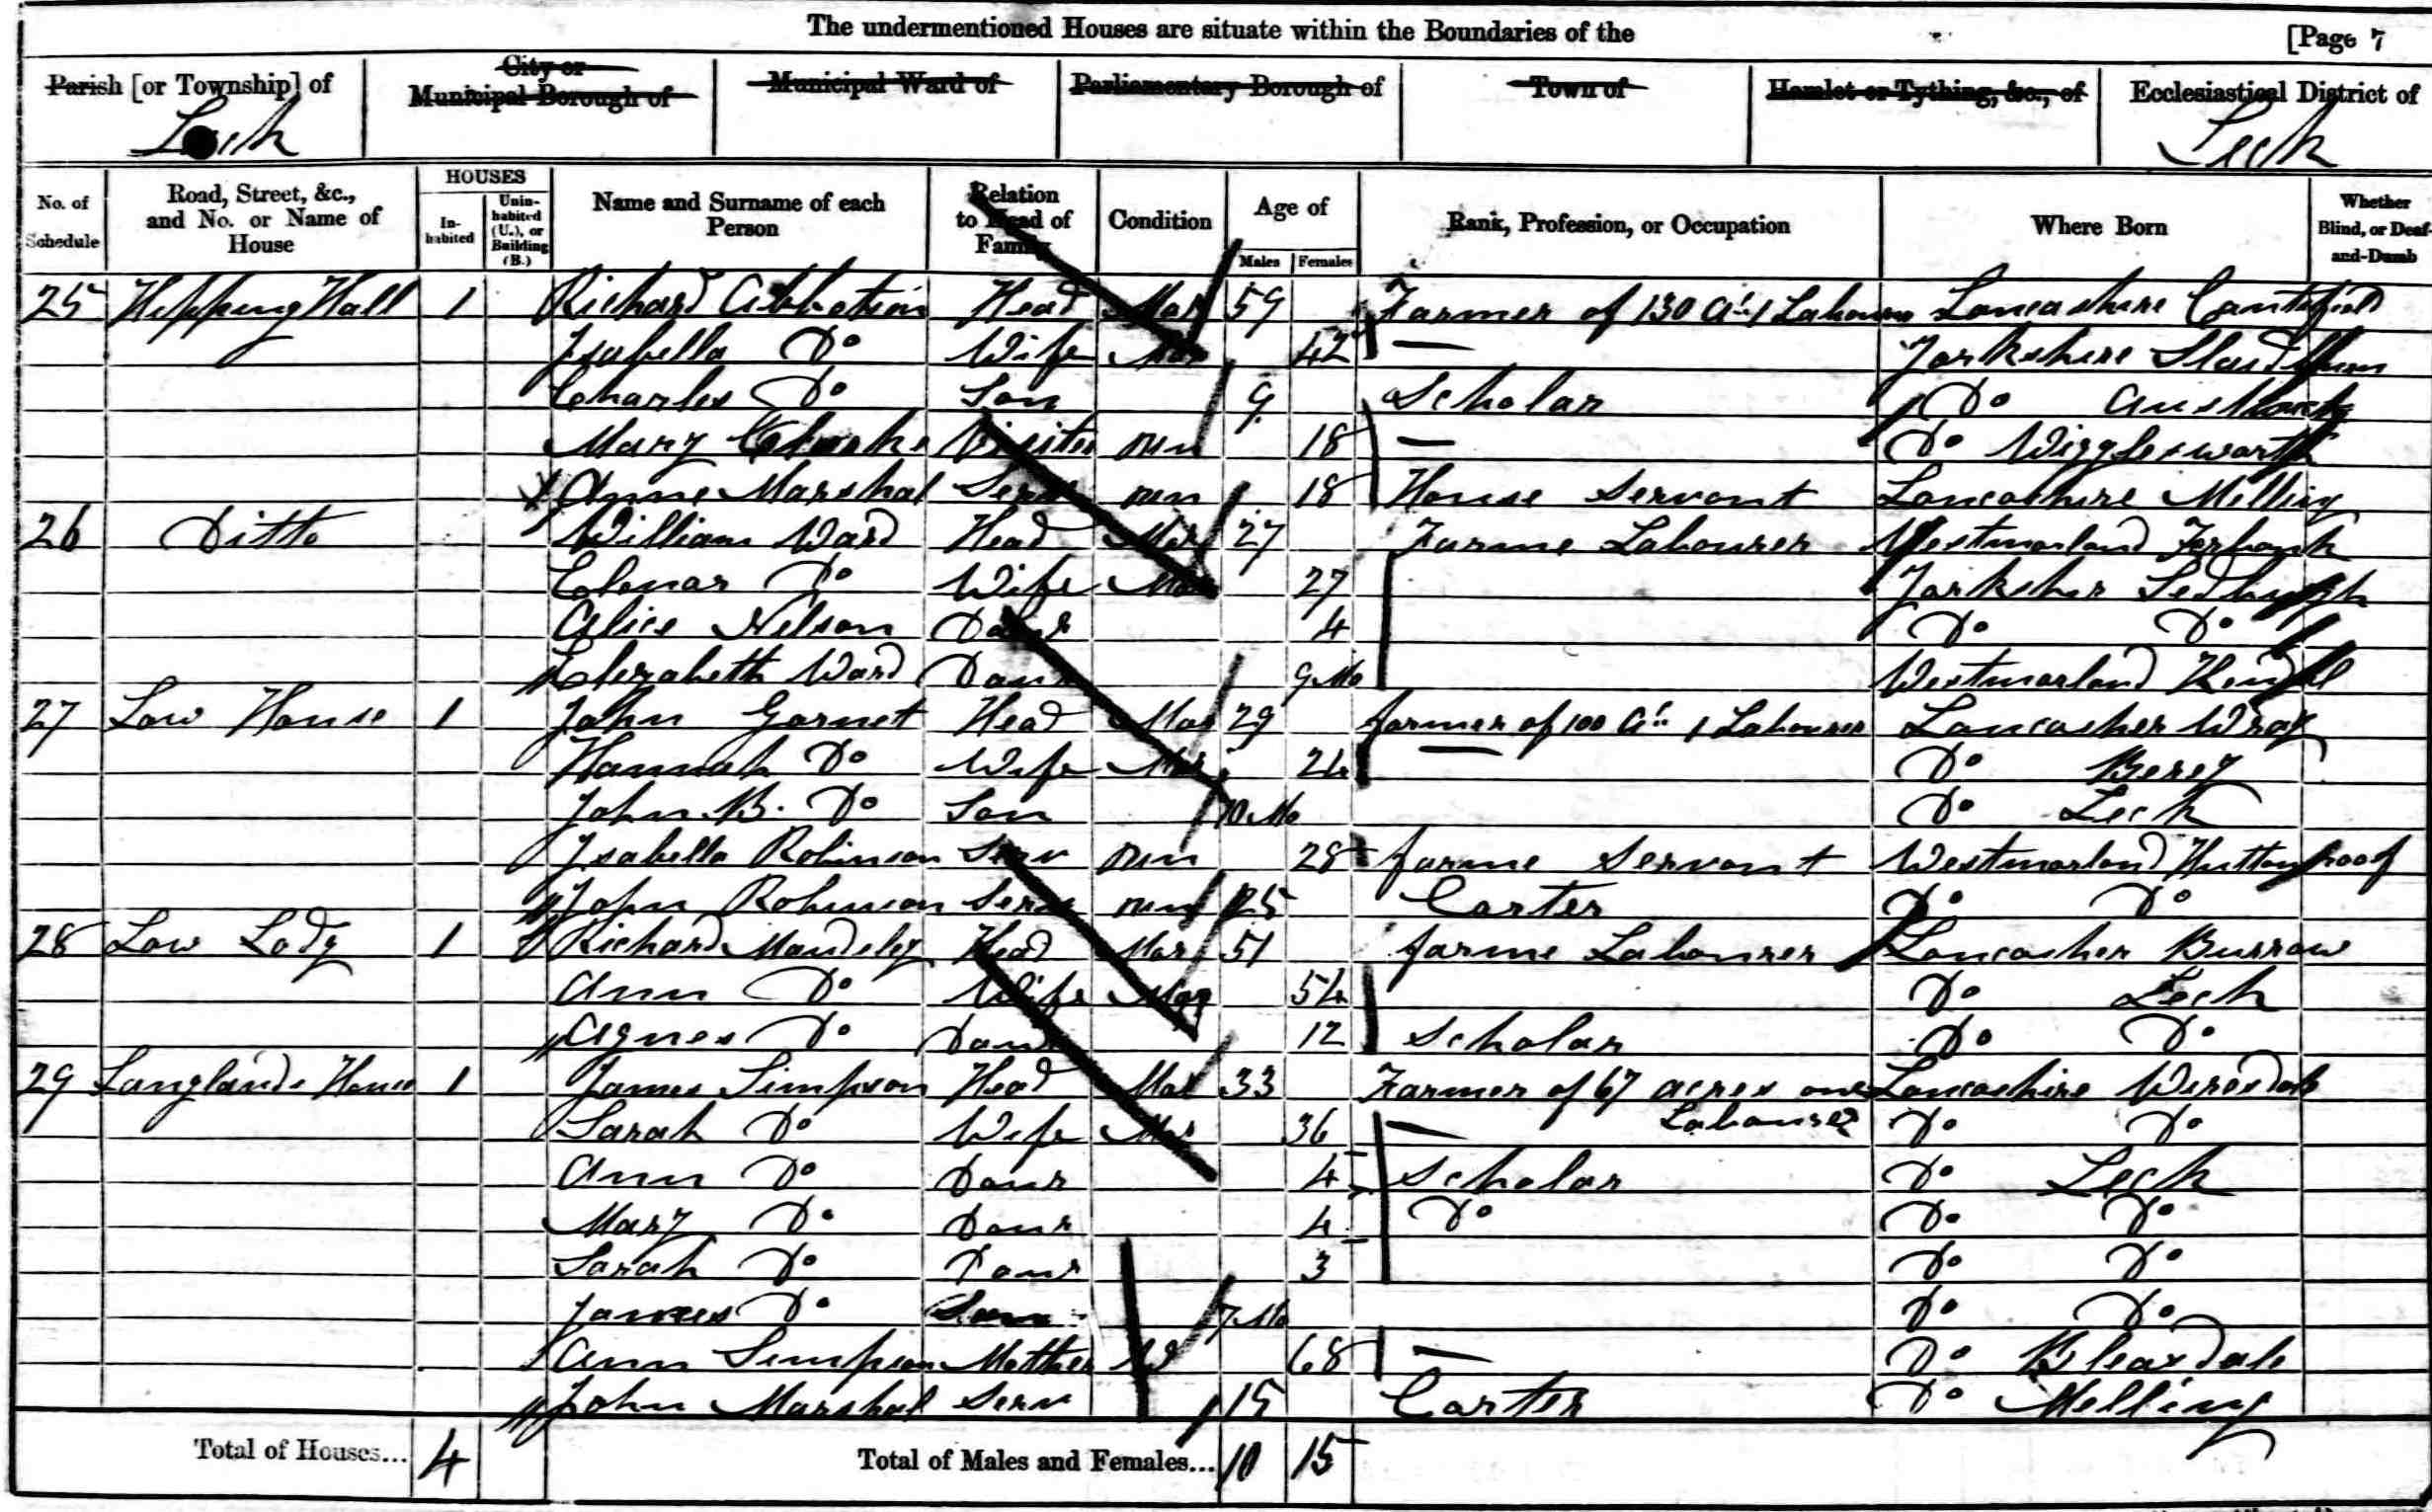 The undermentioned Houses are situate within the Boundaries of the [Page 7
Parish [or Township] of City or Municipal Borough of Municipal Ward of Parliamentary Borough of Town of Hamlet or Tything, &c., of Ecclesiastical District of
Leck Leck
No. of Schedule Road, Street, &c., and No. or Name of House HOUSES Inhabited Uninhabited (U.), or Building (B.) Name and Surname of each Person Relation to Head of Family Condition Age of Males Females Rank, Profession, or Occupation Where Born Whether Blind, or Deaf-and-Dumb
25 Hipping Hall 1 Richard Abbotson Head Mar 59 Farmer of 130 Ac 1 Labourer Lancashire Cantsfield
Isabella Do Wife Mar 42 — Yorkshire Slaidburn
Charles Do Son 9 Scholar Do Austwick
Mary Clarke Visitor Un 18 — Do Wigglesworth
Anne Marshal Serv Un 18 House Servant Lancashire Melling
26 Ditto William Ward Head Mar 27 Farme Labourer Westmorland Ferbank
Elenar Do Wife Mar 27 Yorksher Sedbergh
Alice Nelson Daur 4 Do Do
Elezabeth Ward Daur 9 Mo Westmorland Kendal
27 Low House 1 John Garnet Head Mar 29 farmer of 100 Ac 1 Labourer Lancasher Wray
Hannah Do Wife Mar 24 — Do
John B. Do Son 10 Mo Do Leck
Isabella Robinson Serv Un 28 farme Servant Westmorland Hutton roof
John Robinson Serv Un 25 Carter Do Do
28 Low Lodg 1 Richard Maudsley Head Mar 51 farme Labourer Lancasher Burrow
Ann Do Wife Mar 54 Do Leck
Agnes Do Daur 12 Scholar Do Do
29 Langlands House 1 James Simpson Head Mar 33 Farmer of 67 acres one Labourer Lancashire Wiresdale
Sarah Do Wife Mar 36 — Do Do
Ann Do Daur 4 Scholar Do Leck
Mary Do Daur 4 Do Do Do
Sarah Do Daur 3 Do Do
James Do Son 7 Mo Do Do
Ann Simpson Mother W 68 — Do Bleasdale
John Marshal Serv 15 Carter Do Melling
Total of Houses... 4 Total of Males and Females... 10 15